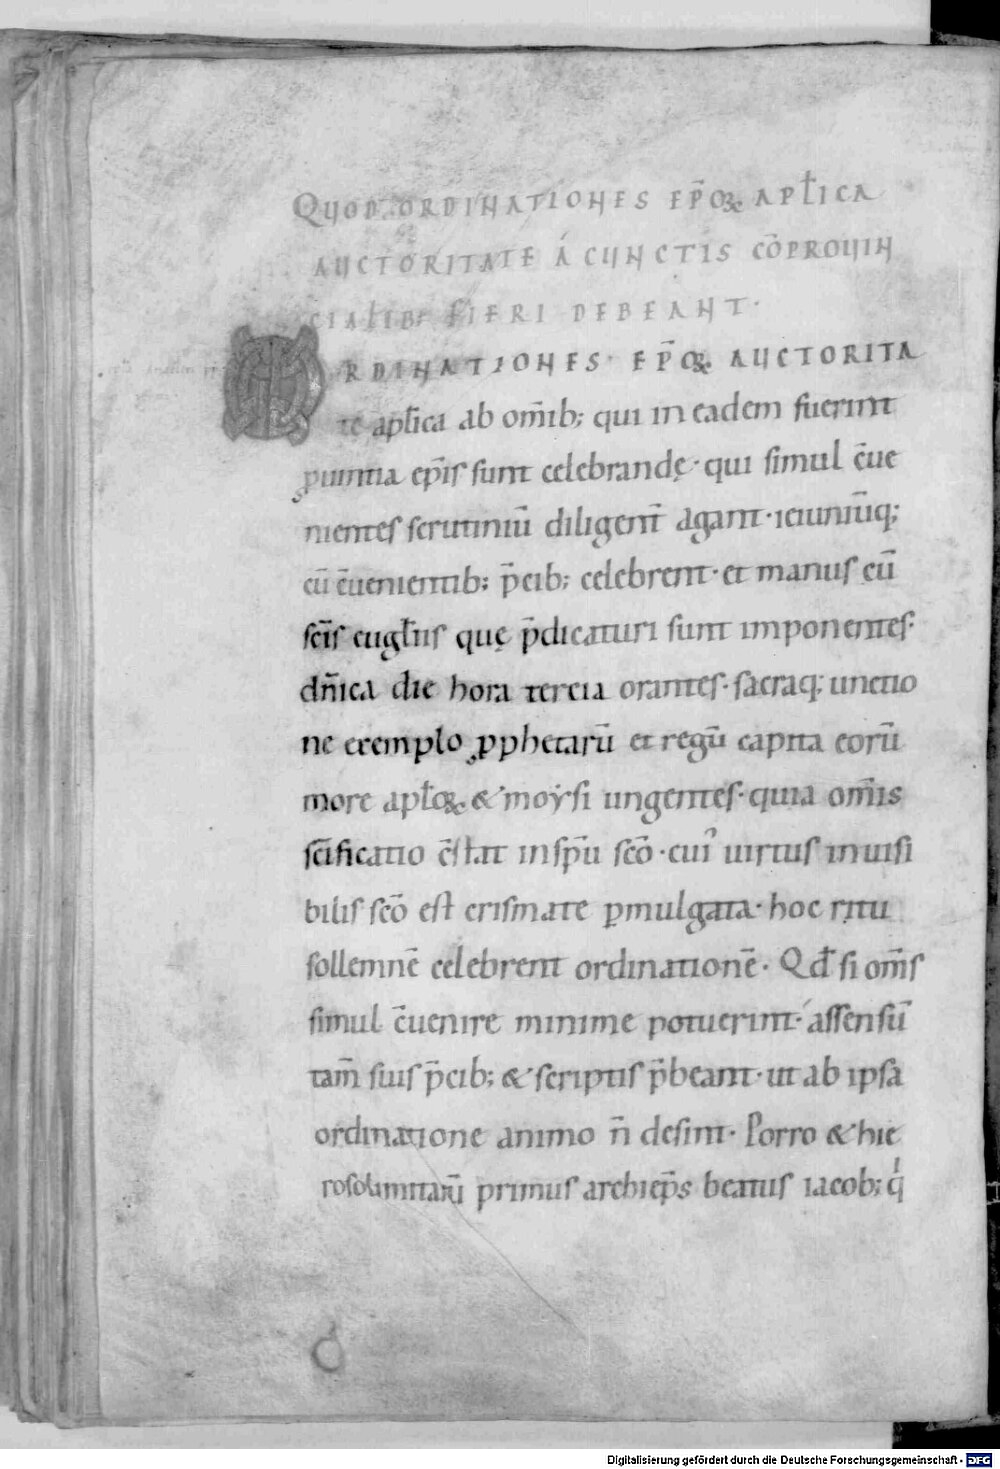 QUOD ORDINATIONES EP̄OꝜ APL̄ICA
AUCTORITATE Á CUNCTIS CŌPROUIN
CIALIB; FIERI DEBEANT·
ORDINATIONES· EP̄OꝜ AUCTORITA
te apl̄ica ab om̄ib; qui in eadem fuerint
ꝓuintia ep̄is sunt celebrandę· qui simul c̄ue
nientes scrutiniū diligent̄ agant· ieiuniūq;
cū c̄uenientib; p̄cib; celebrent· et manus cū
sc̄is eugl̄iis quę p̄dicaturi sunt imponentes·
dn̄ica die hora tercia orantes· sacraq; unctio
ne exemplo ꝓphetarū et regū capita eorū
more apl̄oꝝ & moẏsi ungentes· quia om̄is
sc̄ificatio c̄stat in sp̄u sc̄o· cuiꝰ uirtus inuisi
bilis sc̄o est crismate ꝑmulgata· hoc ritu
sollemnē celebrent ordinationē· Qd̄ si om̄s
simul c̄uenire minime potuerint· assensū
tam̄ suis p̄cib; & scriptis p̄beant· ut ab ipsa
ordinatione animo n̄ desint· Porro & hie
rosolimitarū primus archiep̄s beatus iacob; q̍
Digitalisierung gefördert durch die Deutsche Forschungsgemeinschaft - DFG